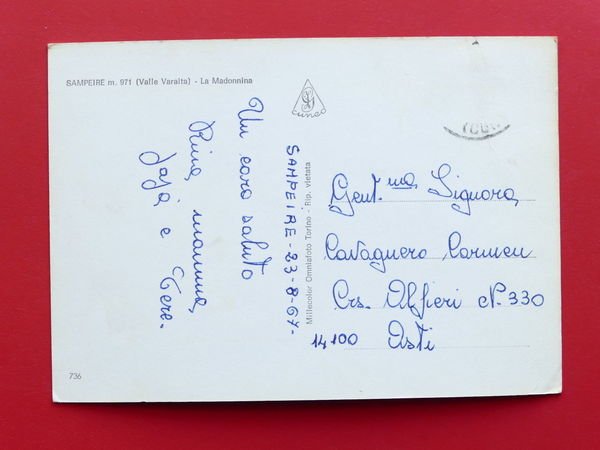 SAMPEIRE m. 971 (Valle Varaita) - La Madonnina
CUNEO
Un caro saluto
Rina, mamma,
Jajà e Tere.
SAMPEIRE - 23-8-67-
Millecolor Omniafoto Torino - Rip. vietata
Gent.ma Signora
Cavagnero Carmen
Crs. Alfieri N. 330
14100 Asti
736